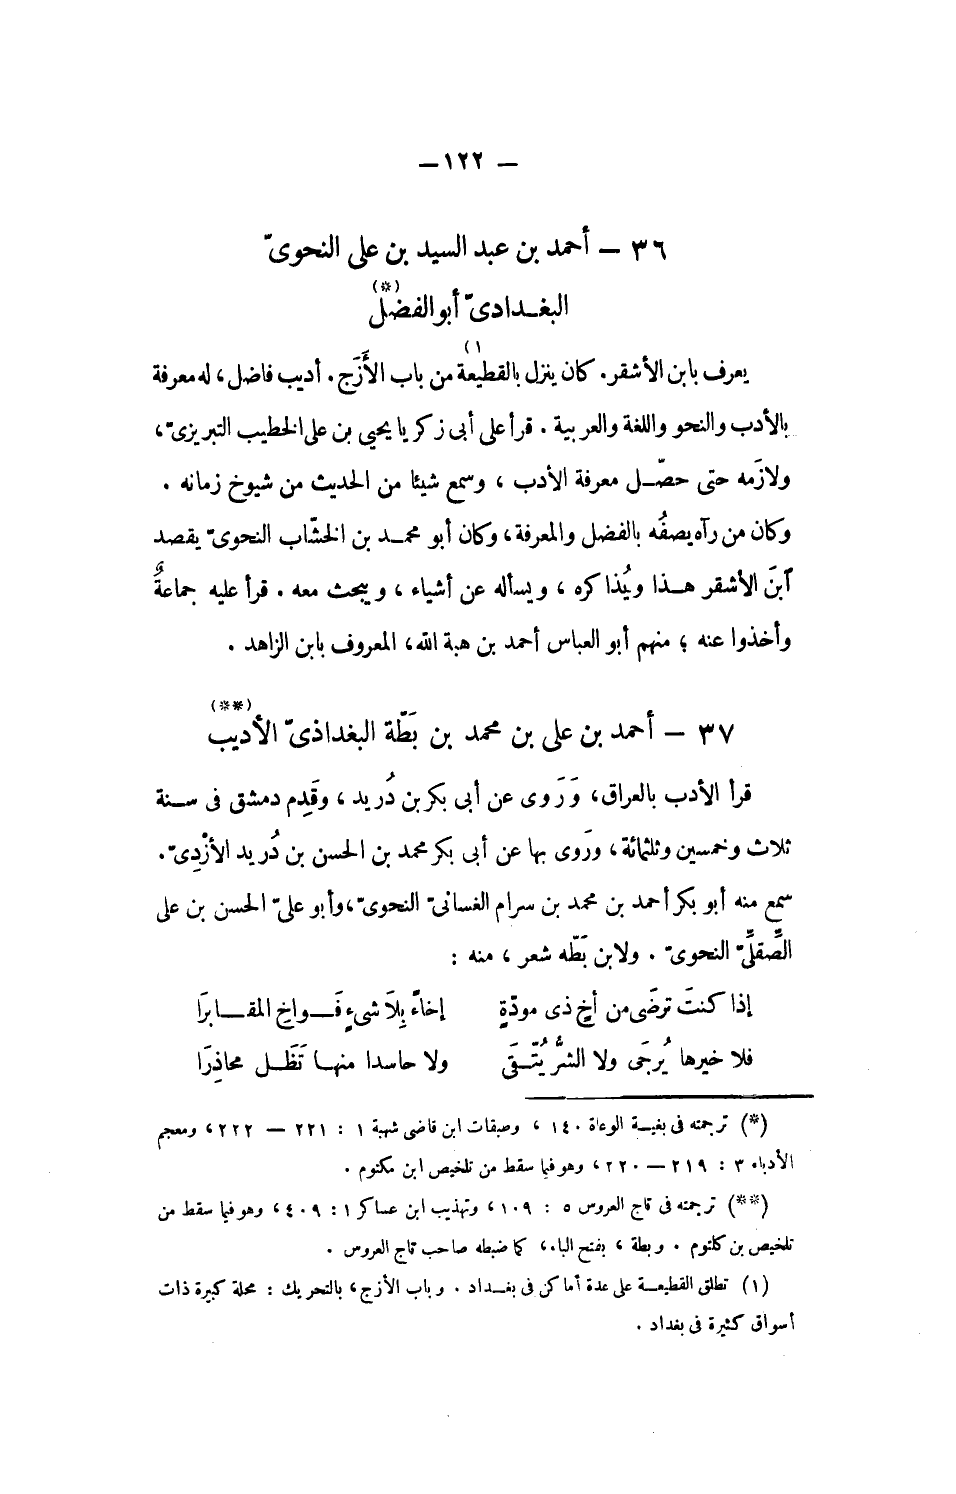 — ١٢٢ —
٣٦ — أحمد بن عبد السيد بن على النحوىّ
البغدادىّ أبو الفضل (*)
يعرف بابن الأشقر. كان ينزل بالقطيعة (١) من باب الأَزَج. أديب فاضل، له معرفة
بالأدب والنحو واللغة والعربية. قرأ على أبى زكريا يحيى بن على الخطيب التبريزىّ،
ولازَمه حتى حصّل معرفة الأدب، وسمع شيئا من الحديث من شيوخ زمانه.
وكان من رآه يصفُه بالفضل والمعرفة، وكان أبو محمد بن الخشّاب النحوىّ يقصد
آبنَ الأشقر هذا ويُذاكره، ويسأله عن أشياء، ويبحث معه. قرأ عليه جماعةٌ
وأخذوا عنه؛ منهم أبو العباس أحمد بن هبة الله، المعروف بابن الزاهد.
٣٧ — أحمد بن على بن محمد بن بَطّة البغداذىّ الأديب (**)
قرأ الأدب بالعراق، وَرَوى عن أبى بكر بن دُريد، وقَدِم دمشق فى سنة
ثلاث وخمسين وثلثمائة، ورَوى بها عن أبى بكر محمد بن الحسن بن دُريد الأزْدِىّ.
سمع منه أبو بكر أحمد بن محمد بن سرام الغسانىّ النحوىّ، وأبو علىّ الحسن بن على
الصِّقلِّىّ النحوىّ. ولابن بَطّه شعر، منه :
إذا كنتَ ترضَى من أخٍ ذى مودّةٍ إخاءً بِلاَ شىءٍ فَواخِ المقابرَا
فلا خيرها يُرجَى ولا الشرُّ يُتّقَى ولا حاسدا منها تَظَل محاذِرَا
(*) ترجمته فى بغية الوعاة ١٤٠، وصبقات ابن قاضى شهبة ١ : ٢٢١ — ٢٢٢، ومعجم
الأدباء ٣ : ٢١٩ — ٢٢٠، وهو فيما سقط من تلخيص ابن مكتوم.
(**) ترجمته فى تاج العروس ٥ : ١٠٩، وتهذيب ابن عساكر ١ : ٤٠٩، وهو فيما سقط من
تلخيص بن كلثوم. وبطة، بفتح الباء، كما ضبطه صاحب تاج العروس.
(١) تطلق القطيعة على عدة أماكن فى بغداد. وباب الأزج، بالتحريك : محلة كبيرة ذات
أسواق كثيرة فى بغداد.